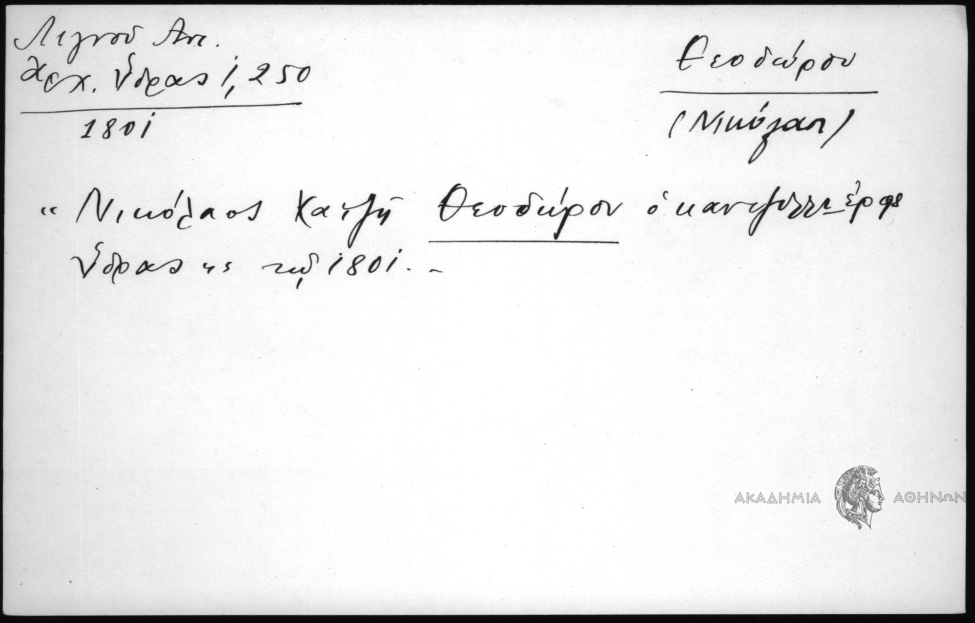 Λιγνού Αντ.
Αρχ. Ύδρας 1, 250
1801
Θεοδώρου
(Νικόλαος)
"Νικόλαος Χατζή Θεοδώρου ὁ
Ύδρας εις τω 1801. -
ΑΚΑΔΗΜΙΑ ΑΘΗΝΩΝ